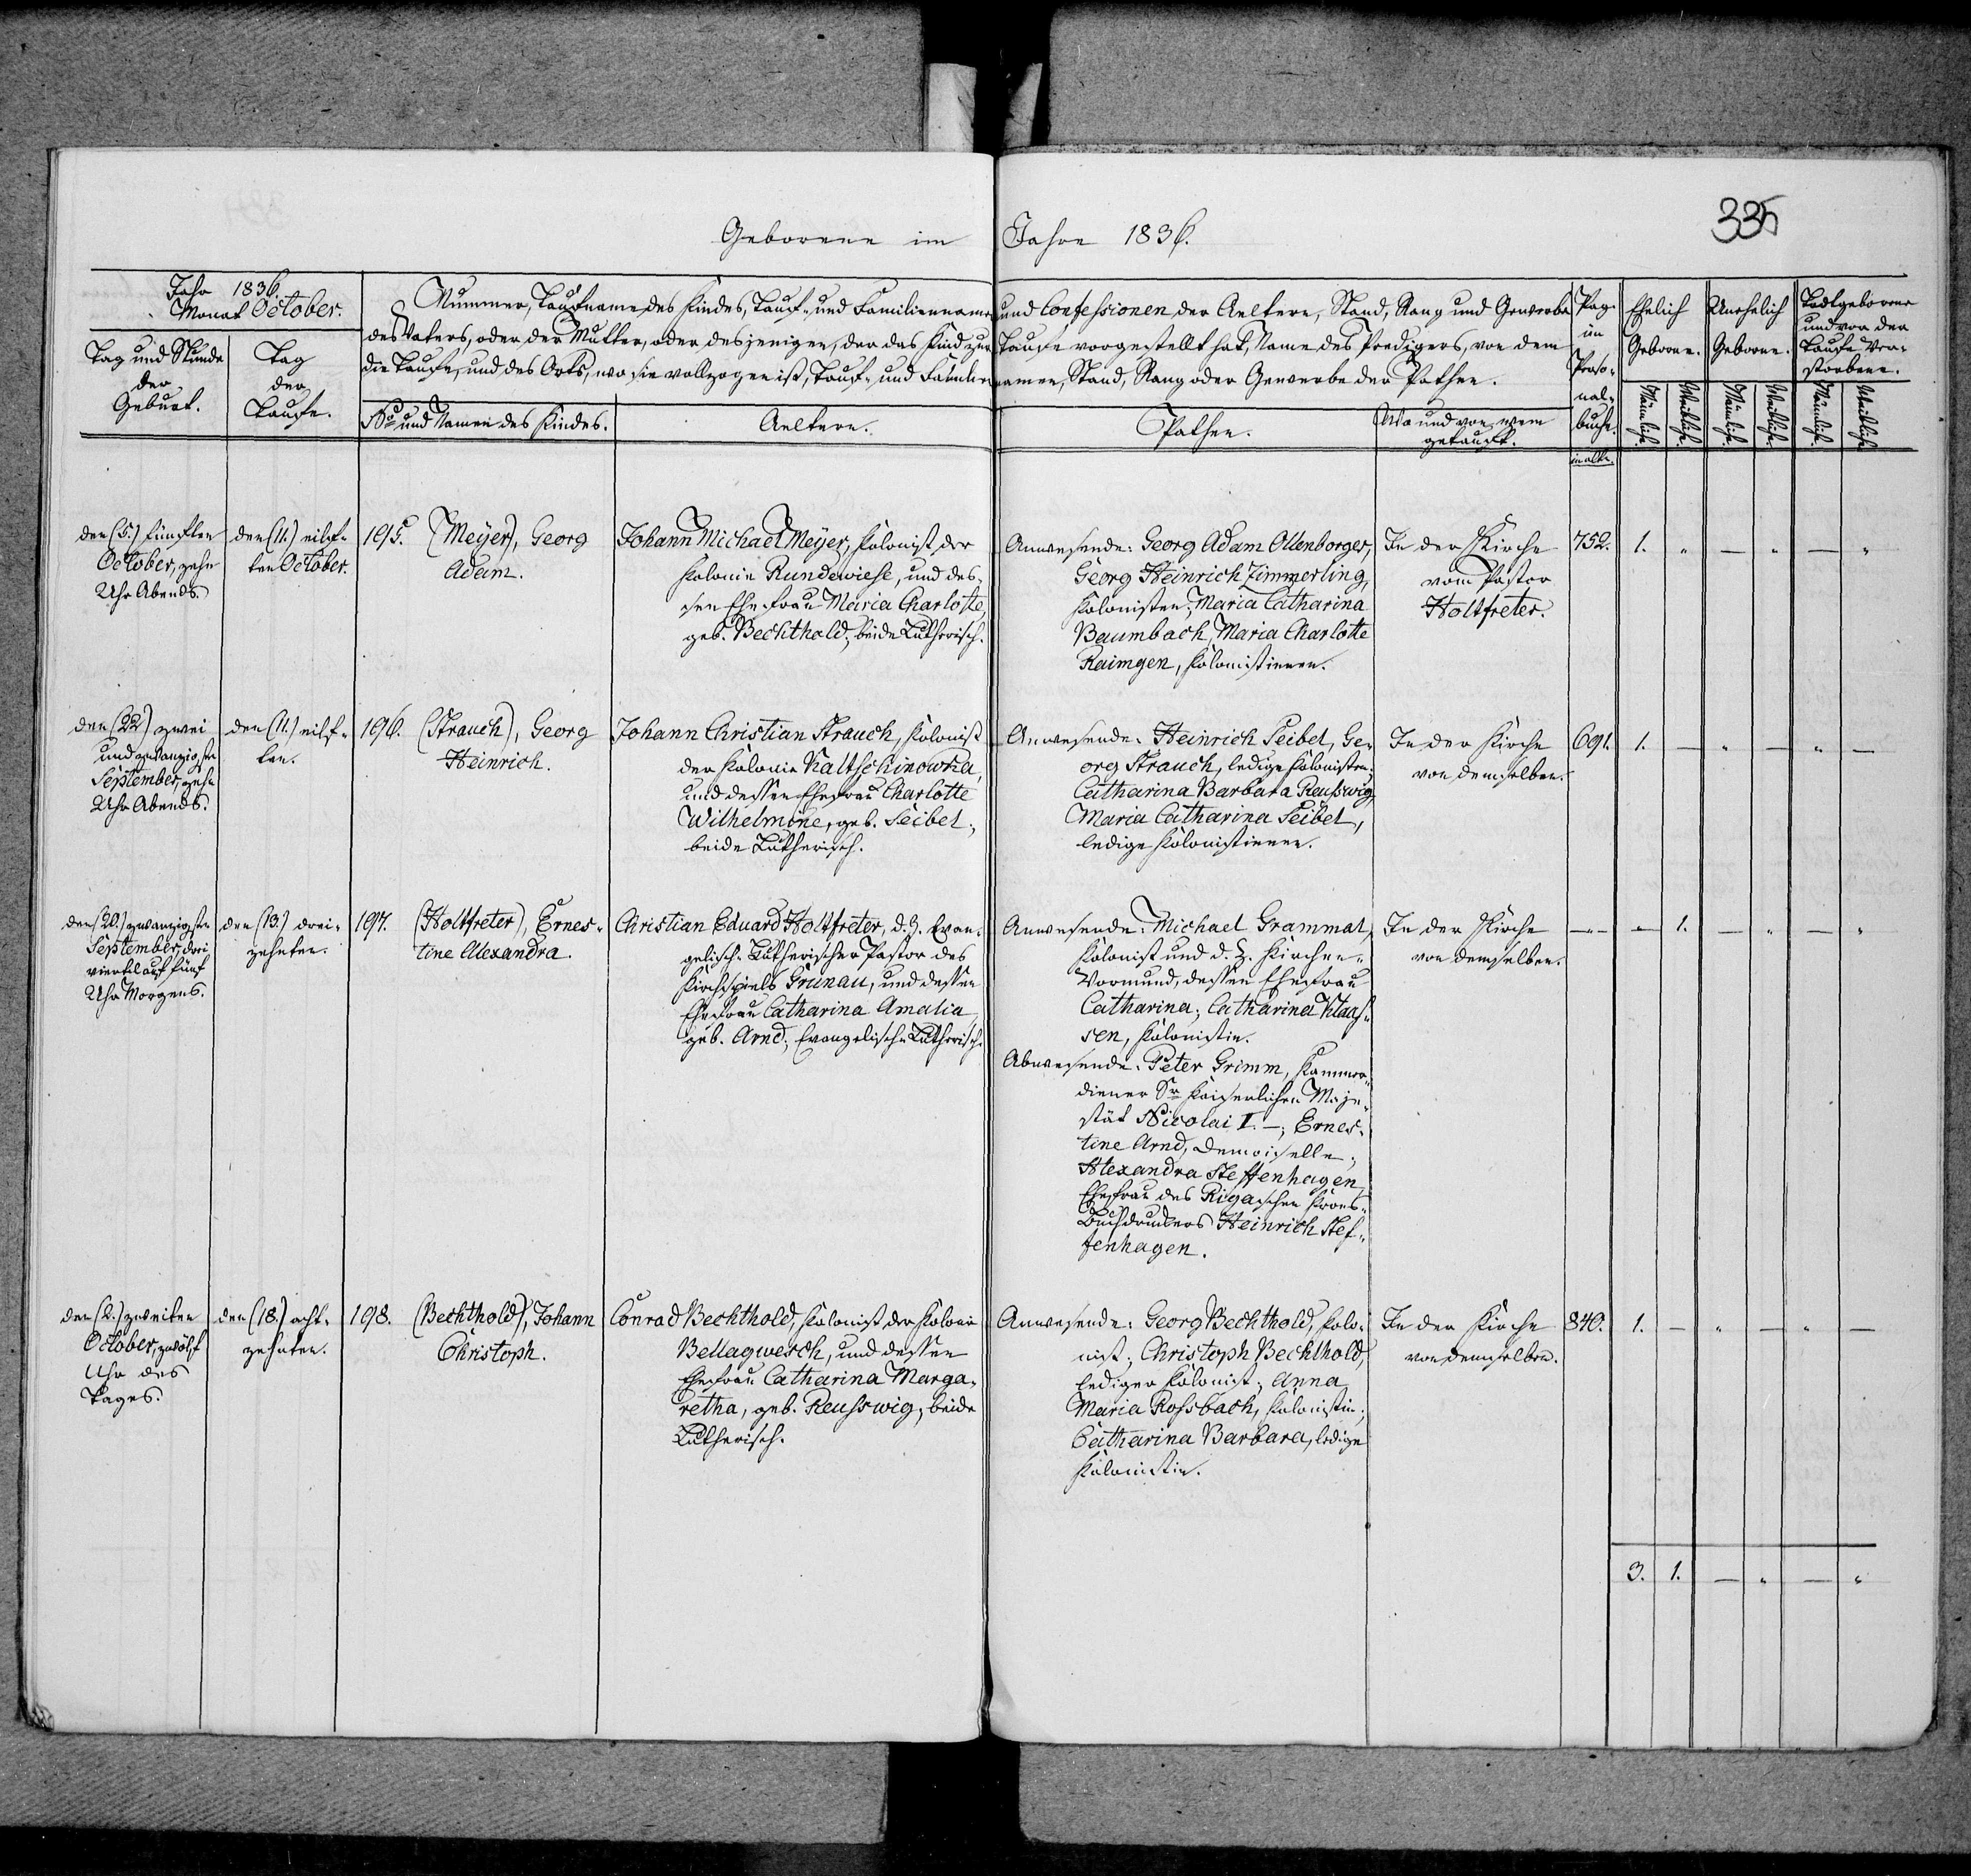 335
Geborene im Jahre 1836.
Jahr 1836.
Monat October.
Tag und Stunde
der
Geburt.
Tag
der
Taufe.
Nummer, Taufname des Kindes, Tauf- und Familienname und Confessionen der Aeltern, Stand, Rang und Gewerbe
des Vaters, oder der Mutter, oder desjenigen, der das Kind zur Taufe vorgestellt hat, Name des Predigers, von dem
die Taufe, und des Orts, wo sie vollzogen ist, Tauf- und Familiennamen, Stand, Rang oder Gewerbe der Pathen.
No und Namen des Kindes.
Aeltern.
Pathen.
Wo und von wem
getauft.
Pag.
im
Perso-
nal-
buche.
im alten.
Ehelich
Geborne.
Unehelich
Geborne.
Todtgeborene
und vor der
Taufe Ver-
storbene.
Männliche.
Weibliche.
Männliche.
Weibliche.
Männliche.
Weibliche.
den (5.) fünften
October, zehn
Uhr Abends.
den (11.) eilf-
ten October.
195. (Meyer), Georg
Adam.
Johann Michael Meyer, Kolonist der
Kolonie Rundewiese, und des-
sen Ehefrau Maria Charlotte,
geb. Bechthold; beide Lutherisch.
Anwesende: Georg Adam Ollenborger,
Georg Heinrich Zimmerling,
Kolonisten; Maria Catharina
Baumbach, Maria Charlotte
Raimgen, Kolonistinnen.
In der Kirche
vom Pastor
Holtfreter.
752. 1. " — " — "
den (22) zwei
und zwanzigsten
September, zehn
Uhr Abends.
den (11.) eilf-
ten.
196. (Strauch), Georg
Heinrich.
Johann Christian Strauch, Kolonist
der Kolonie Kaltschinowka,
und dessen Ehefrau Charlotte
Wilhelmine, geb. Seibel;
beide Lutherisch.
Anwesende: Heinrich Seibel, Ge-
org Strauch, ledige Kolonisten;
Catharina Barbara Reusswig,
Maria Catharina Seibel,
ledige Kolonistinnen.
In der Kirche
von demselben.
691. 1. — " — " —
den (20.) zwanzigsten
September, drei
viertel auf fünf
Uhr Morgens.
den (13.) drei-
zehnten.
197. (Holtfreter), Ernes-
tine Alexandra.
Christian Eduard Holtfreter, d. Z. Evan-
gelisch-Lutherischer Pastor des
Kirchspiels Grünau, und dessen
Ehefrau Catharina Amalia
geb. Arnd; Evangelisch-Lutherisch.
Anwesende: Michael Grammat,
Kolonist und d. Z. Kirchen-
Vormund, dessen Ehefrau
Catharina; Catharina Klaas-
sen, Kolonistin.
Abwesende: Peter Grimm, Kammer-
diener Sr Kaiserlichen Maje-
stät Nicolai I. —; Ernes-
tine Arnd, Demoiselle;
Alexandra Steffenhagen
Ehefrau des Rigaschen Krons-
Buchdruckers Heinrich Stef-
fenhagen.
In der Kirche
von demselben.
—"— — 1. — " — "
den (2.) zweiten
October, zwölf
Uhr des
Tages.
den (18.) acht-
zehnten.
198. (Bechthold), Johann
Christoph.
Conrad Bechthold, Kolonist der Kolonie
Bellagwesch, und dessen
Ehefrau Catharina Marga-
retha, geb. Reusswig; beide
Lutherisch.
Anwesende: Georg Bechthold, Kolo-
nist; Christoph Bechthold,
lediger Kolonist; Anna
Maria Rossbach, Kolonistin;
Catharina Barbara, ledige
Kolonistin.
In der Kirche
von demselben.
840. 1. — " — " —
3. 1. — " — "